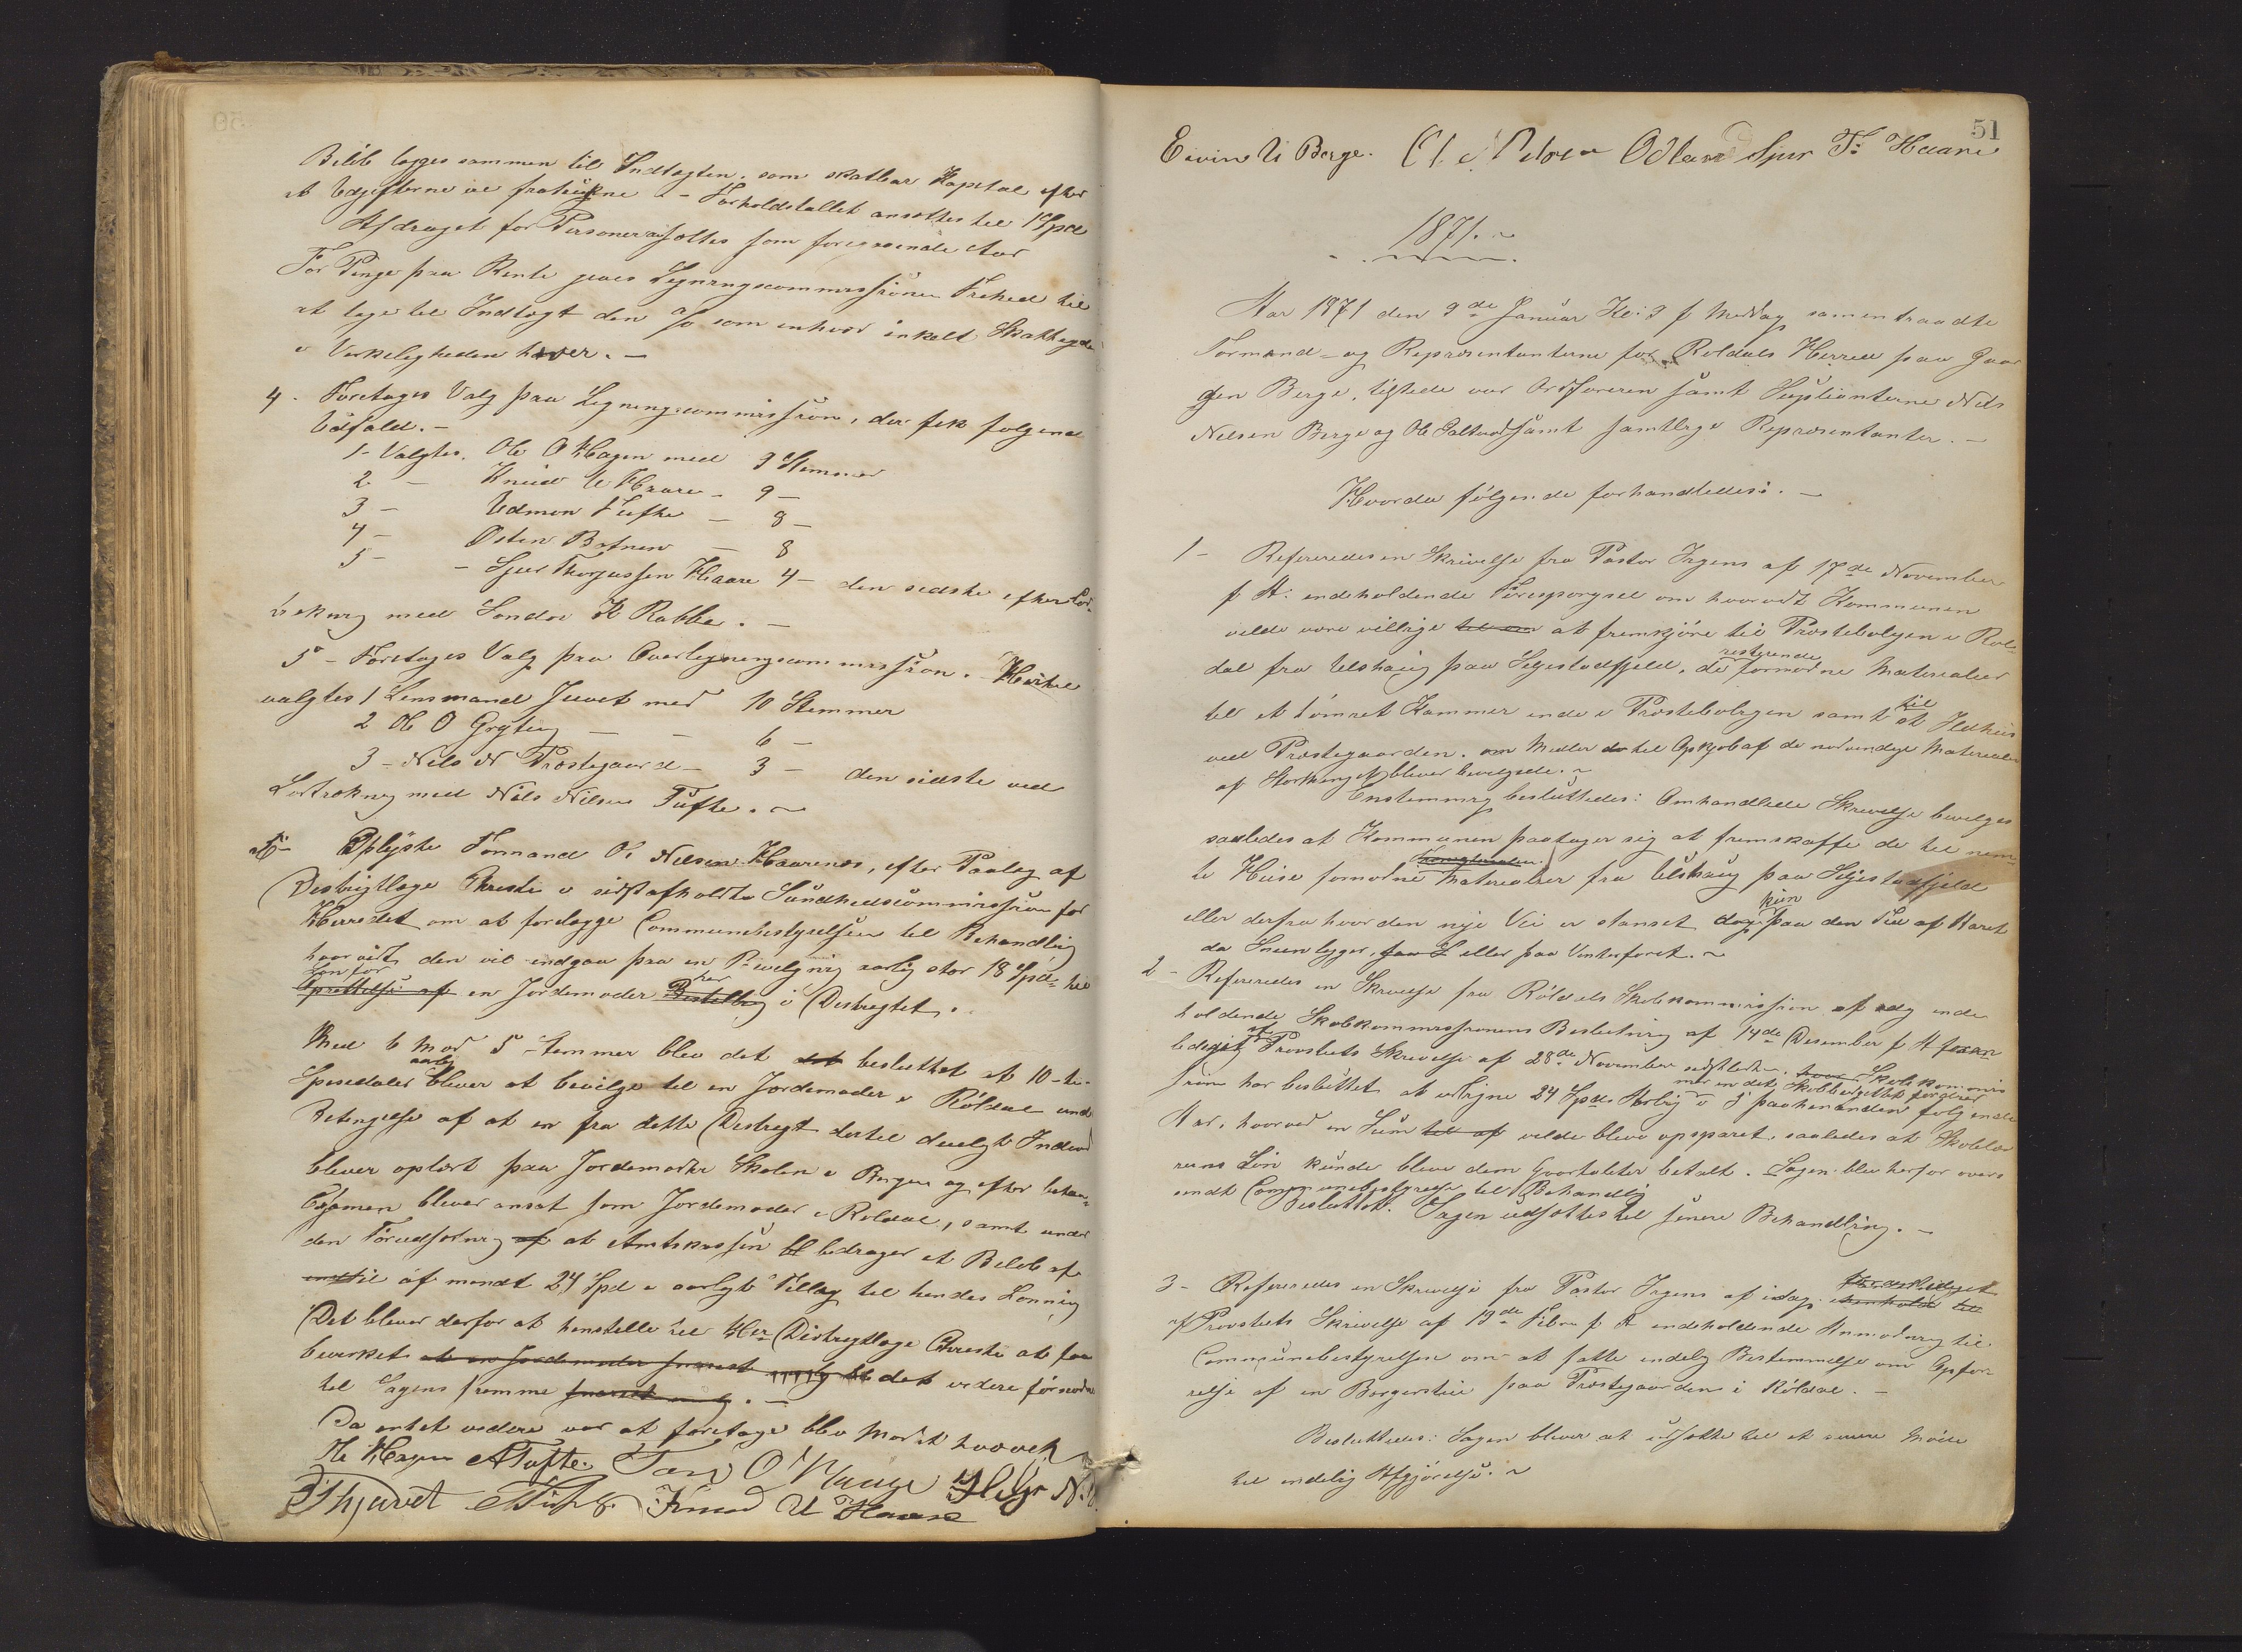 Beløb lægges sammen til Indtægten, som skatbar Kapital efter
at Udgifterne er fratrukne – Forholdstallet ansættes til 1 Spd
Afdraget for Personer ansættes som foregaaende Aar
For Penge paa Rente gives Ligningscommissionen Frihed til
at tage til Indtægt den Ro som enhver enkelt Skatteyder
i Verkeligheden haver. –
4 - Foretages Valg paa Ligningscommission, der fik følgende
Udfald. –
1 - Valgtes. Ole O Hagen med 9 Stemmer
2 – Knud U Haare – 9 –
3 – Udmon Tufte – 8 –
4 – Østen Botnen – 8
5 – – Sjur Thorjussen Haare 4 – den sidste efter Lod-
trekning med Sondre K Rabbe. –
5 - Foretages Valg paa Overligningscommission. Hertil
valgtes 1 Lensmand Juvet med 10 Stemmer
2 Ole O Gryting – – 6 –
3 - Nils N Prestegaard – 3 – den sidste ved
Lodtrekning med Nils Nilsen Tufte. ~
6 - Oplyste Formand O. Nilsen Haarenes, efter Paalæg af
Destrigtlæge i sidst afholdte Sundhedscommission for
Herredet om at forelægge Communebestyrelsen til Behandling
hvorvidt den vil indgaa paa en Bevilgning aarlig stor 18 Spd: til
Løn for
Oprettelse af en Jordemoder her Bestilling i Destrigtet.
Med 6 mod 5 Stemmer blev det det besluttet at 10 - ti -
Spesidaler aarlig bliver at bevilge til en Jordemoder i Röldal under
Betingelse af at en fra dette Destrigt dertil duelgt Individ
bliver oplært paa Jordemoder Skolen i Bergen og efter
Examen bliver ansat som Jordemoder i Röldal, samt under
den Forudsætning af at Amtskassen bl bedrager et Beløb af
indtil af mindst 24 Spd i aarligt Tillæg til hendes Lønning
Det bliver derfor at henstille til Herr Distrigtlæge at faa
bevirket at en Jordemoder snarest det videre fornødne
til Sagens fremme snarest . –
Da entet vedere var at foretage blev Mødet hævet
Ole Hagen A Tufte. O Hauge Helge N.
Thjuvet Tufte. Knud U Haare
51
Eivind U Berge. Ol. Nelson Odland Sjur T: Haare
1871. ~
Aar 1871 den 9de Januar Kl: 3 f Middag samentraadte
Formand – og Representanterne for Roldals Herred paa Gaar
den Berge, tilstede var Ordføreren samt Supleanterne Nils
Nelsen Berge og Ole samt samtlige Representanter. –
Hvorda følgende forhandledes: –
1 - Refereredes en Skrivelse fra Pastor Irgens af 17de November
f A: indeholdende Foresporgsel om hvorvidt Kommunen
vilde være villige til om at fremkjøre til Prestebolgen i Rol-
dal fra Ulshaug paa Seljestadfjeld, de restgrende fornødne Materialier
til et tømret Kammer inde i Prestebolgen samt til et Ildhus
ved Prestegaarden. om Midler de til Opkjøb af de nødvendige Materialer
af Storthinget bliver bevilgede. ~
Enstemmig besluttedes: Omhandlede Skrivelse bevilges
saaledes at Kommunen paatager sig at fremskaffe de til nem-
te Huse fornødne Materialier fra Ulshaug paa Seljestadfjeld
eller derfra hvor den nye Vei er stanset dog kun paa den Tid af Aaret
da Sneen ligger, eller paa Vinterforet. ~
2 - Refereredes en Skrivelse fra Röldals Skolekommission af idag inde
holdende Skolekommissionens Beslutning af 14de Desember f A
ledsaget af Provstiets Skrivelse af 28de November sidstleden. hvor Skolekommis
sion har besluttet at udligne 24 Spd: Aarlig mer en det Skolebudgettet fordrer i 5 paahenanden følgende
Aar, hvorved en Sum til af vilde blive opsparet, saaledes at Skolelæ
rerens Løn kunde blive dem Qvartaliter betalt. Sagen blev herfor overs
endt Communebestyrelse til Behandling
Besluttet. Sagen udsættes til senere Behandling. –
3 - Refereredes en Skrivelse fra Pastor Irgens af idag. foranlediget i henhold til
af Provstiets Skrivelse af 19de Febr f A indeholdende Anmodning til
Communebestyrelsen om at fatte endelig Bestemmelse om Opfør-
relse af en Borgerstue paa Prestegaarden i Röldal. –
Besluttedes: Sagen bliver at udsætte til et senere Møde
til endelig Afgjørelse. ~